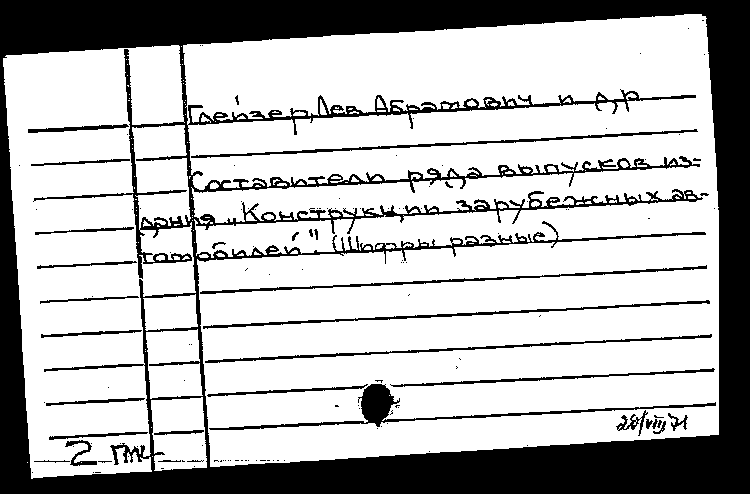 Глейзер, Лев Абрамович и др
Составители ряда выпусков из=
дания „Конструкции зарубежных ав-
томобилей". (Шифры разные)
28/VIII 71
2